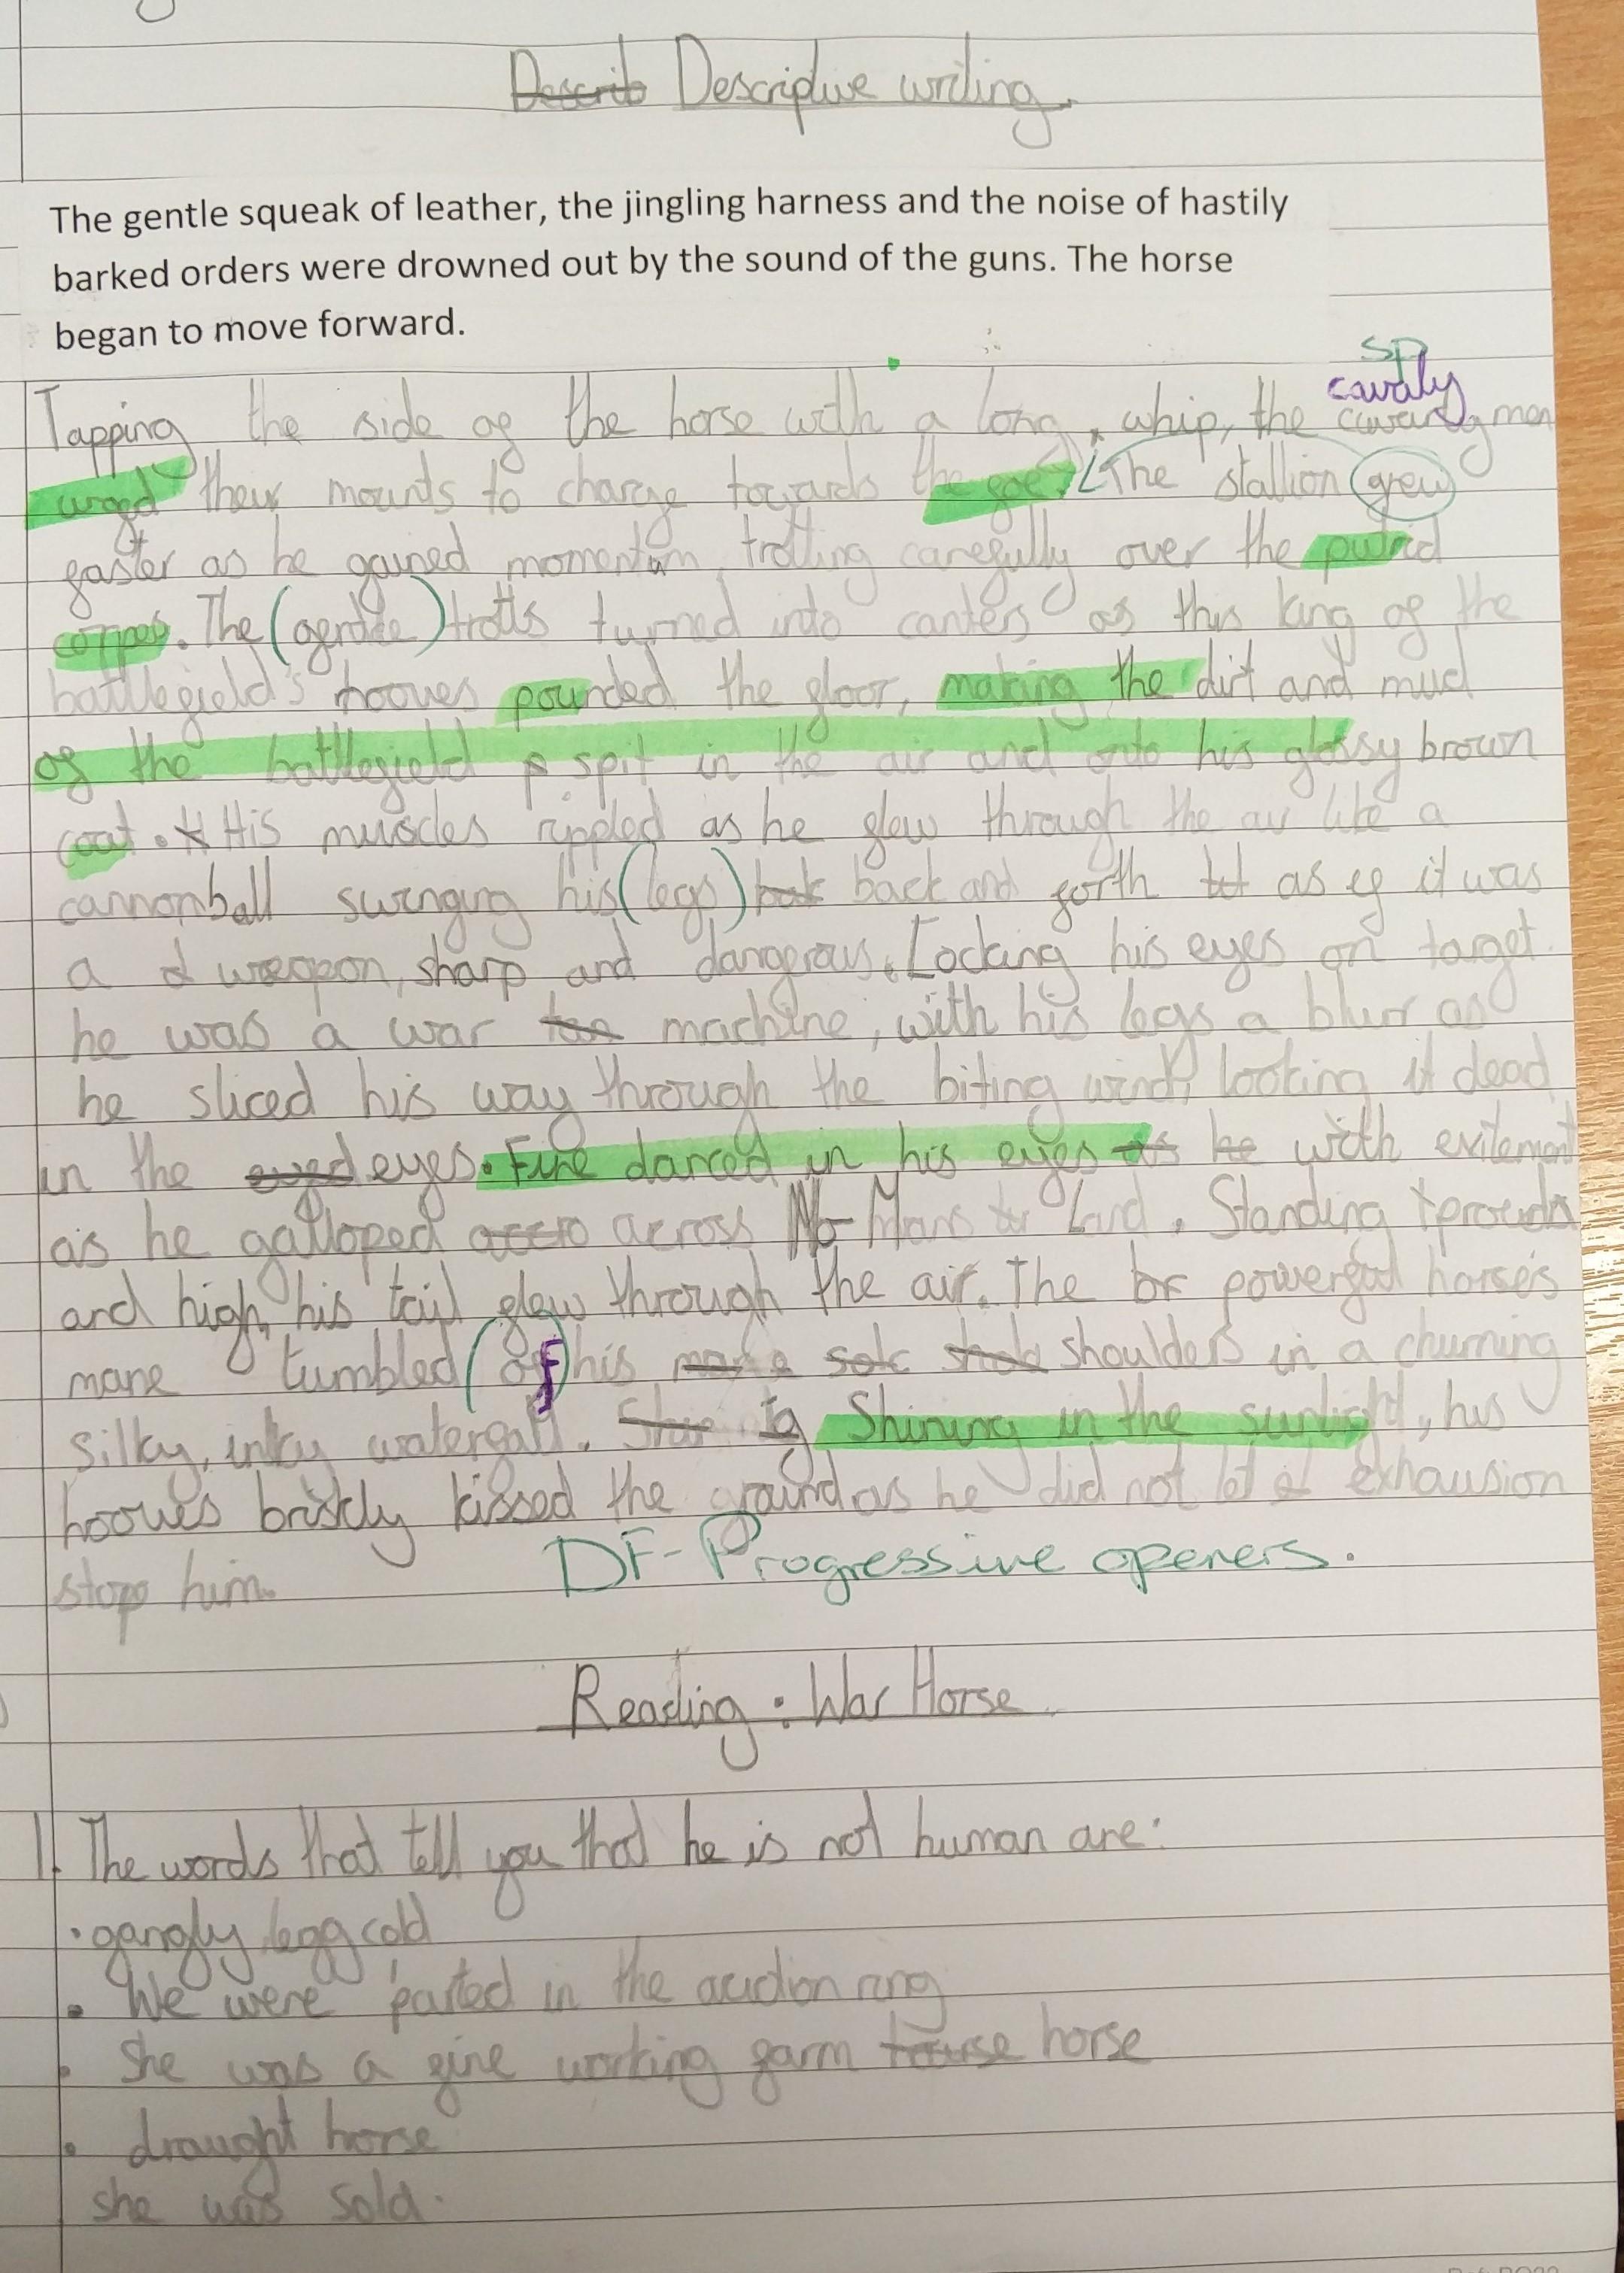 Describ Descriptive writing.
The gentle squeak of leather, the jingling harness and the noise of hastily
barked orders were drowned out by the sound of the guns. The horse
began to move forward.
sp
cavalry
Tapping the side of the horse with a long, whip, the men
urged their mounts to charge towards the foe. The stallion grew
faster as he gained momentum, trotting carefully over the putrid
corpes. The (gentle) trotts turned into canters as this king of the
battlefield's hooves pounded the floor, making the dirt and mud
of the battlefield p spit in the air and onto his glossy brown
coat. H His muscles rippled as he flew through the air like a
cannonball swinging his (legs) bak back and forth as if it was
a d weapon, sharp and dangerous. Locking his eyes on target
he was a war machine, with his legs a blur as
he sliced his way through the biting wind, looking it dead
in the eyes. Fire danced in his eyes as he with exitement
as he galloped accro across No Mans Land. Standing proudly
and high, his tail flew through the air. The br powerful horse's
mane tumbled (off) his shoulders in a churning
silky, inky waterfall. Shining in the sunlight, his
hooves briskly kissed the ground as he did not let exhausion
stop him.
DF- Progressive openers.
Reading: War Horse.
1. The words that tell you that he is not human are:
• gangly legg cold
• We were parted in the auction ring
• She was a fine working farm horse
• draught horse
she was sold.